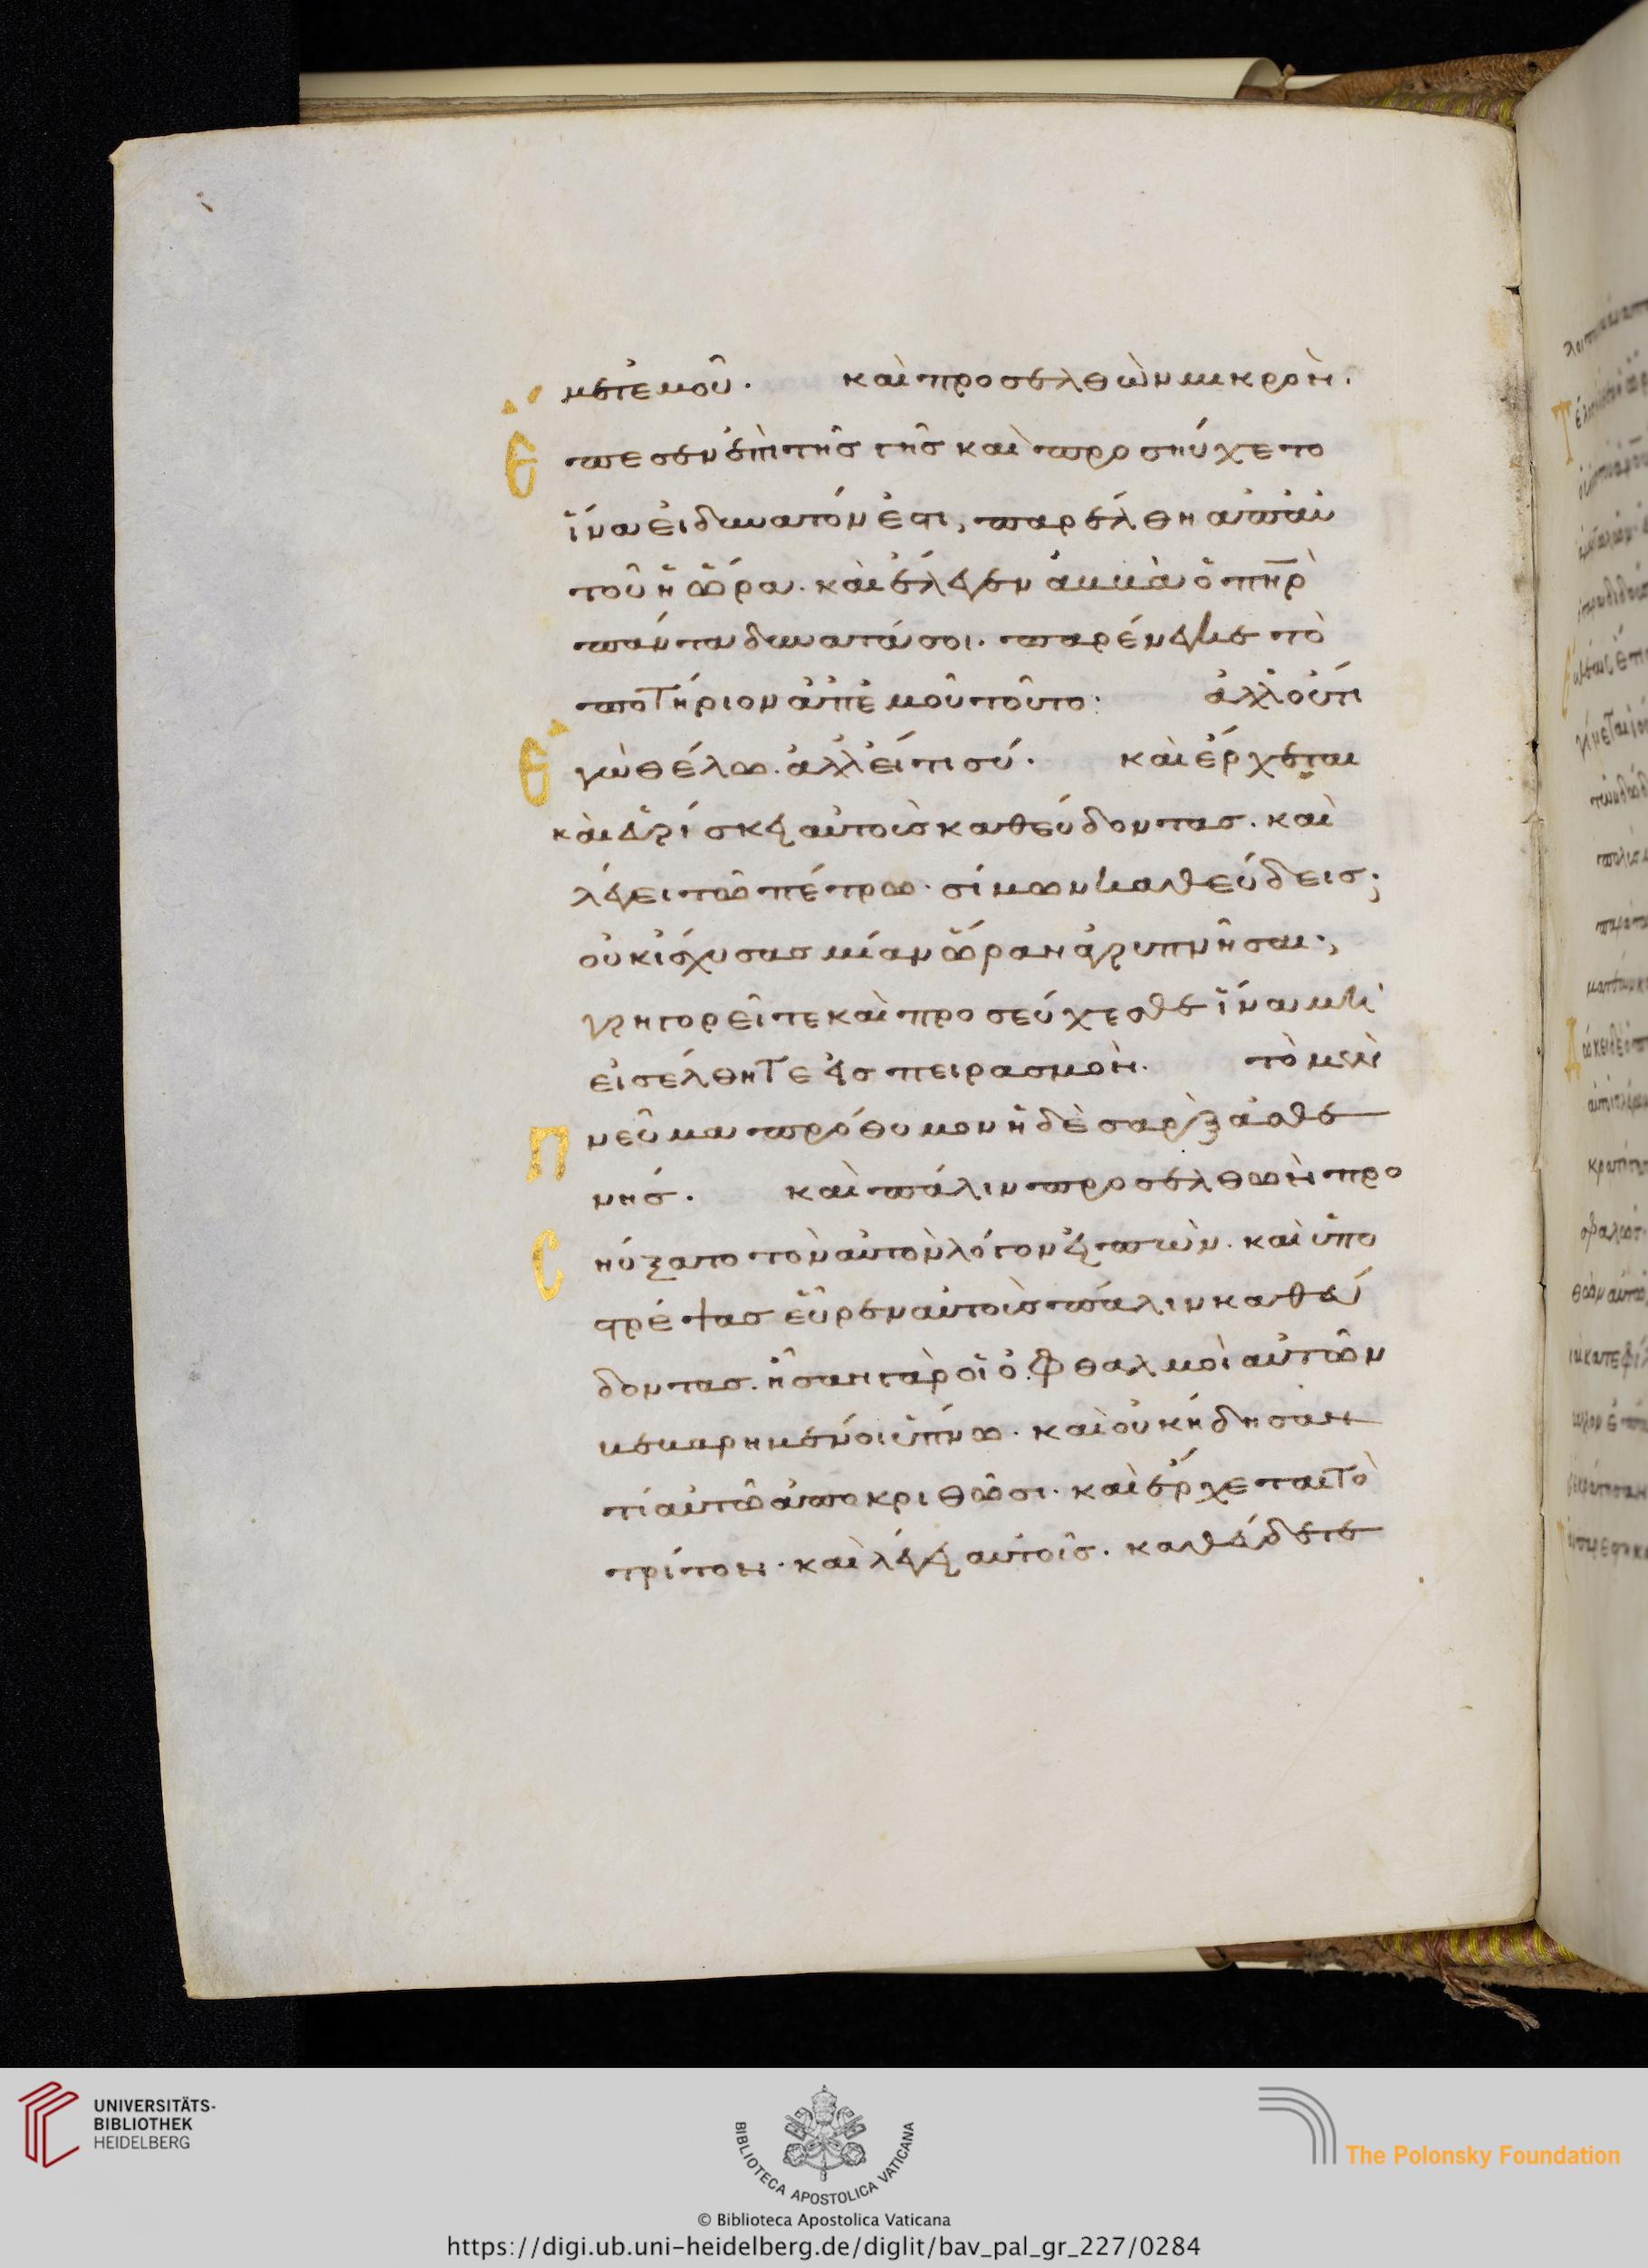 μετ εμοῦ. καὶ προσελθὼν μικρὸν.
Ἔπεσεν ἐπὶ τῆς γῆς καὶ προσηύχετο
ἵνα εἰ δυνατόν ἐστι, παρέλθη ἀπ αὐ
τοῦ ἡ ὥρα. καὶ ἔλεγεν ἀββὰ ὁ πῆρ
πάντα δυνατά σοι. παρένεγκε τὸ
ποτήριον ἀπ ἐμοῦ τοῦτο· ἀλλ οὐ τί
Ἐγὼ θέλω. ἀλλ εἴ τι σύ. καὶ ἔρχεται
καὶ εὑρίσκει αὐτοὺς καθεύδοντας. καὶ
λέγει τῶ πέτρω. σίμων καθεύδεις;
οὐκ ἰσχυσας μίαν ὥραν ἀγρυπνῆσαι;
γρηγορεῖτε καὶ προσεύχεσθε ἵνα μὴ
εἰσέλθητε εἰς πειρασμὸν. τὸ μὲν
Πνεῦμα πρόθυμον ἡ δὲ σαρξ ἀσθε
νής. καὶ πάλιν προσελθὼν προ
Σηύξατο τὸν αὐτὸν λόγον εἰπὼν. καὶ ὑπο
στρέψας εὗρεν αὐτοὺς πάλιν καθεύ
δοντας. ἦσαν γὰρ οἱ ὀφθαλμοὶ αὐτῶν
βεβαρημένοι ὕπνω. καὶ οὐκ ήδησαν
τί αὐτῶ ἀποκριθῶσι. καὶ ἔρχεται τὸ
τρίτον. καὶ λέγει αὐτοῖς. καθεύδετε
UNIVERSITÄTS-
BIBLIOTHEK
HEIDELBERG
BIBLIOTECA APOSTOLICA VATICANA
The Polonsky Foundation
© Biblioteca Apostolica Vaticana
https://digi.ub.uni-heidelberg.de/diglit/bav_pal_gr_227/0284